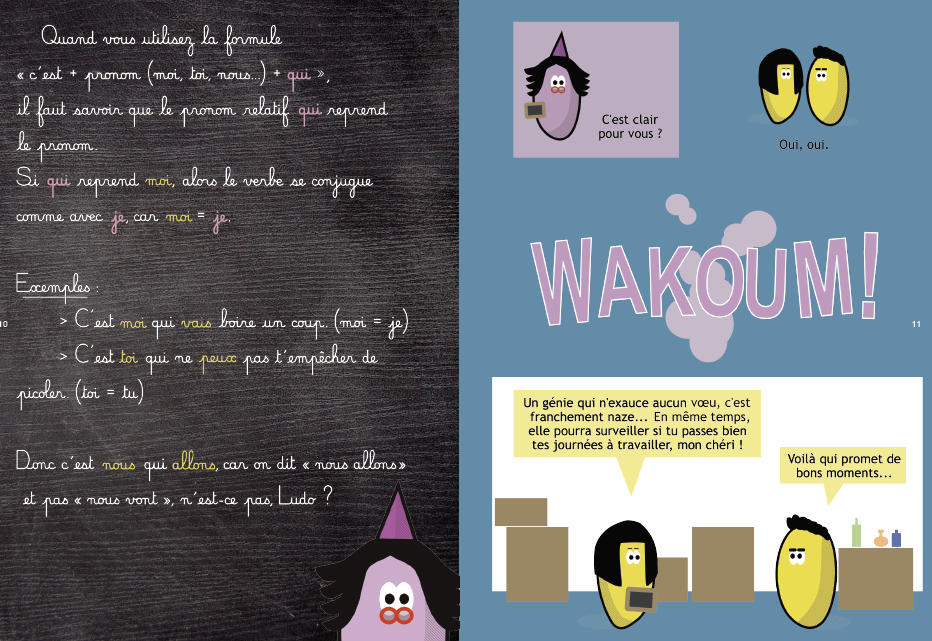 Quand vous utilisez la formule
« c'est + pronom (moi, toi, nous...) + qui »,
il faut savoir que le pronom relatif qui reprend
le pronom.
Si qui reprend moi, alors le verbe se conjugue
comme avec je, car moi = je.
Exemples :
> C'est moi qui vais boire un coup. (moi = je)
> C'est toi qui ne peux pas t'empêcher de
picoler. (toi = tu)
Donc c'est nous qui allons, car on dit « nous allons»
et pas « nous vont », n'est-ce pas, Ludo ?
10
C'est clair
pour vous ?
Oui, oui.
WAKOUM!
11
Un génie qui n'exauce aucun vœu, c'est
franchement naze... En même temps,
elle pourra surveiller si tu passes bien
tes journées à travailler, mon chéri !
Voilà qui promet de
bons moments...